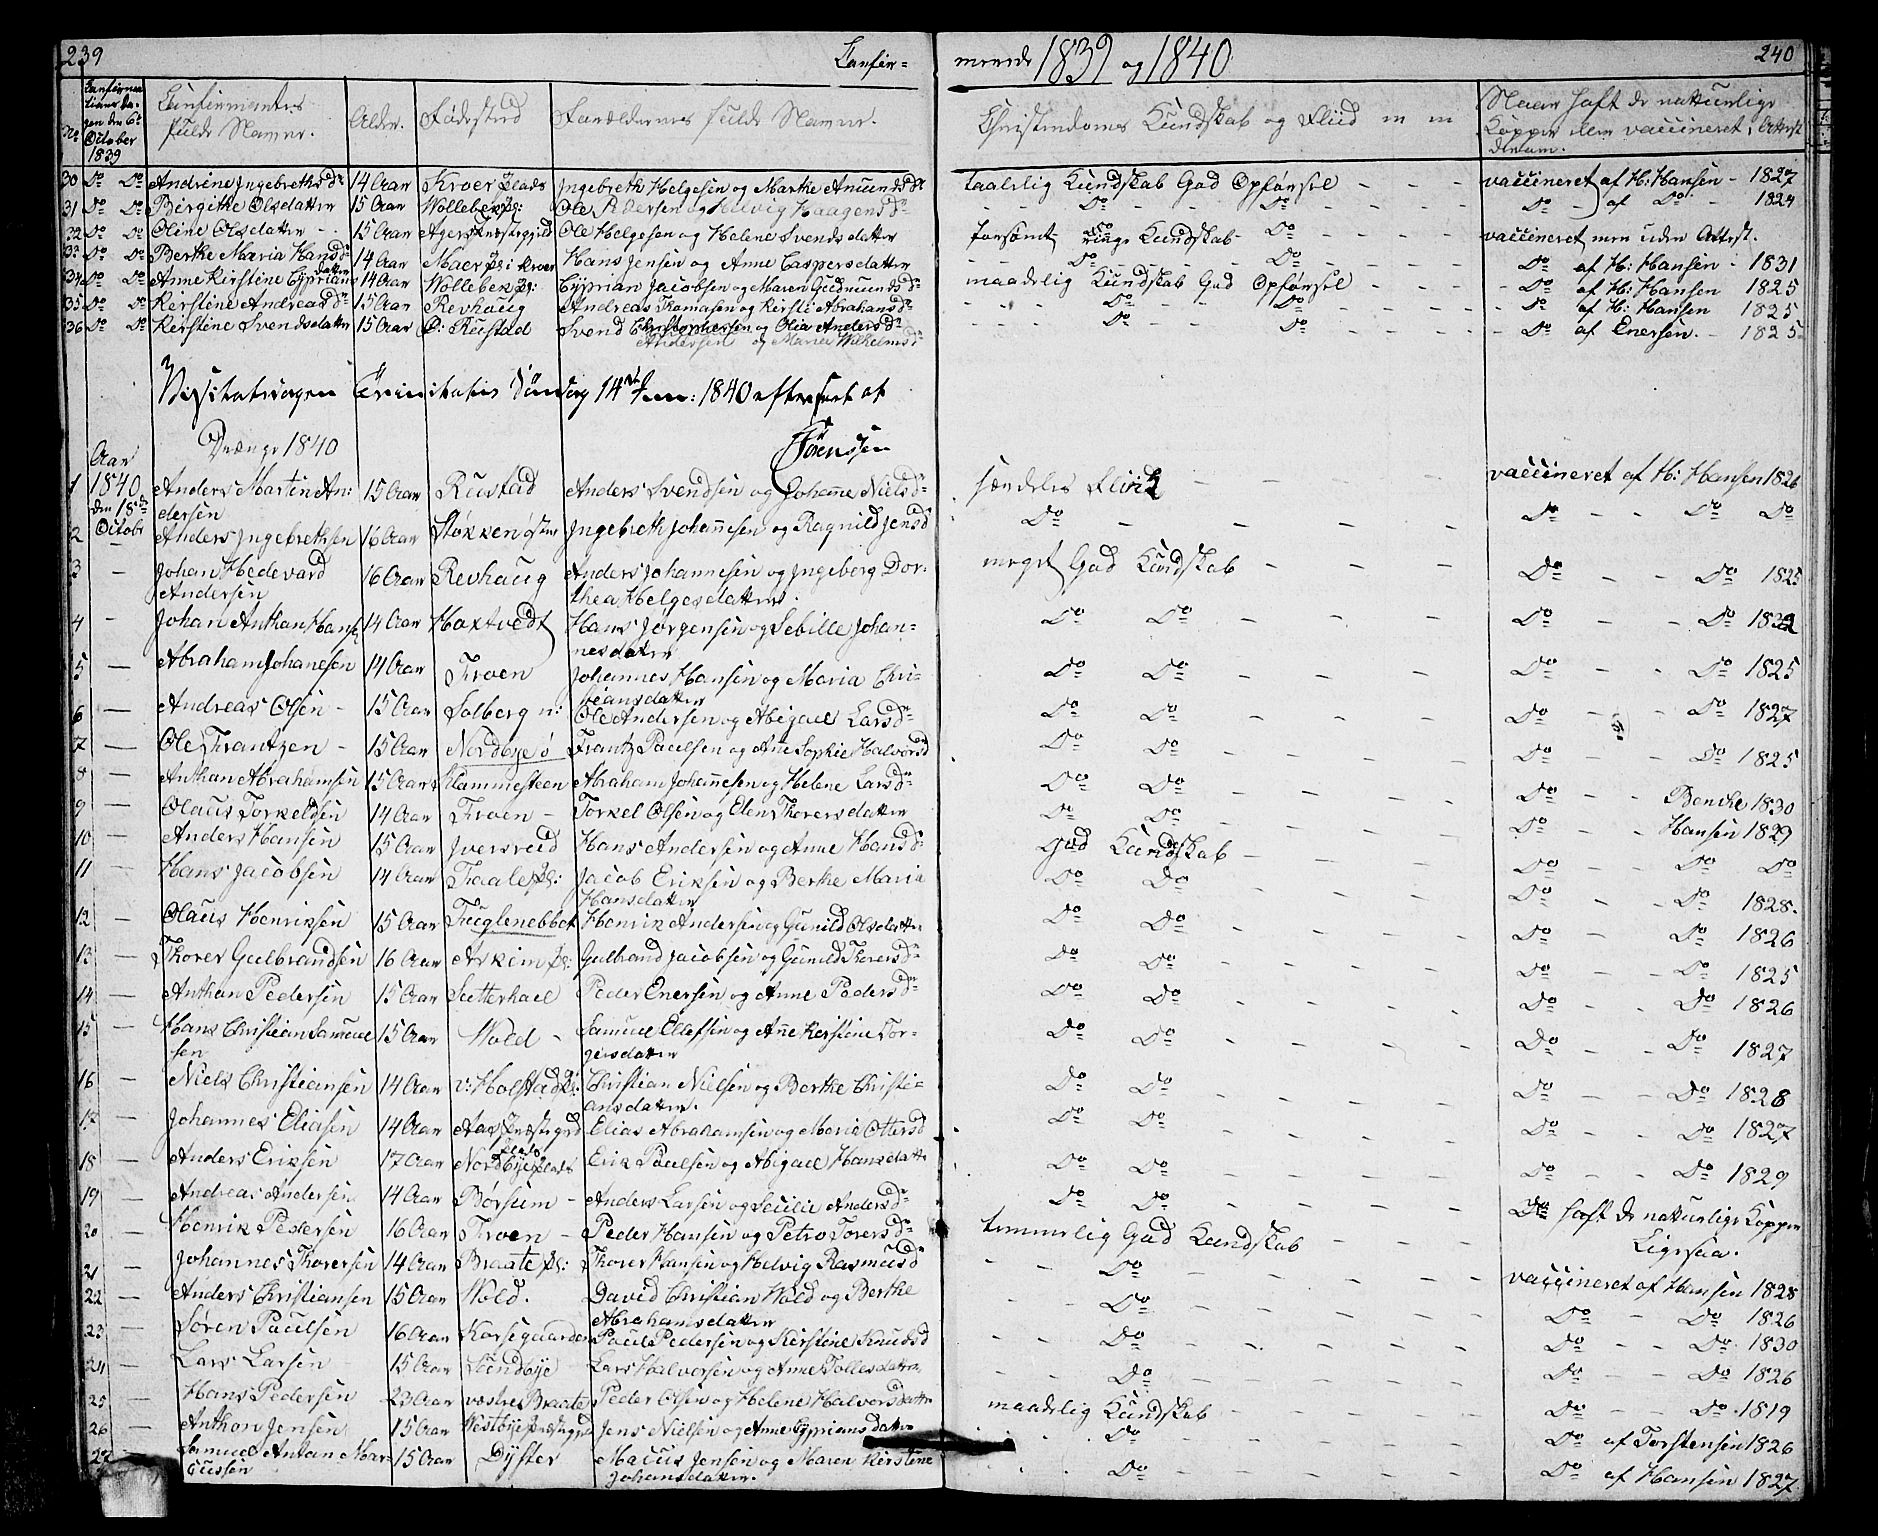 239
Confir-
merede 1839 og 1840
240
No
Confirma-
tions Da-
gen den 6te
October
1839
Confirmantes
fulde Navne.
Alder.
Fødested
Forældrenes fulde Navne.
Christendoms Kundskab og Fliid
Naar haft de naturlige
Kopper eller vaccineret, Attest
derom.
30 Do Do Andrine Ingebrethsdr 14 Aar Kroer Plads Ingebreth Helgesen og Marthe Amundsdr taalelig Kundskab God Opførsel - - - vaccineret af H: Hansen - 1827
31 Do Do Birgithe Olsdatter 15 Aar Wollebek Pl: Ole Pedersen og Helvig Haagensdr - - Do - - Do - - - Do - af Do - 1824
32 Do Do Oline Olsdatter - 15 Aar Agers Præstegjeld Ole Helgesen og Helene Svendsdatter forsømt ringe Kundskab - Do - - - vaccineret men uden Attest.
33 Do Do Berthe Maria Hansdr 14 Aar Maer Pl: i Kroer Hans Jensen og Anne Caspersdatter - - Do - - Do - - - Do af H: Hansen - 1831
34 Do Do Anne Kirstine Cyprians datter 14 Aar Wollebek Pl: Cyprian Jacobsen og Maren Gudmundsdr maadelig Kundskab God Opførsel - - - Do af H: Hansen 1825
35 Do Do Kerstine Andreasdr 15 Aar Revhaug Andreas Thomasen og Kirstie Abrahamsdr - - Do - - Do - - - Do af H: Hansen 1825
36 Do Do Kerstine Svendsdatter 15 Aar Rustad Svend Christophersen og Olia Andersdr - - Do - - Do - - - Do af Enersen. - 1825
Andersen og Maria Wilhelmsdr
Visitatsdagen Trinitatis Søndag 14de Jun: 1840 efterseet af
Sørenssen
Drenge 1840
Aar
1840
den 18de
Octobr
1 Anders Martin An:
dersen 15 Aar Rustad Anders Svendsen og Johanne Nielsdr særdeles Fliid - - - vaccineret af H: Hansen 1826
2 - Anders Ingebrethsen 16 Aar Støkken østre Ingebreth Johannesen og Ragnild Jensd Do - - - - Do - - Do Do
3 - Johan Hedevard
Andersen 16 Aar Revhaug Anders Johannesen og Ingeborg Dor-
thea Helgesdatter. meget God Kundskab - - - Do - - Do 1825
4 - Johan Anthon Hansen 14 Aar Hoxtvedt Hans Jørgensen og Sebille Johan-
nesdatter Do Do - - - Do - - Do 1832
5 - Abraham Johanesen 14 Aar Froen Johannes Hansen og Maria Chri-
stiansdatter Do Do - - - Do - - Do 1825
6 - Andreas Olsen - 15 Aar Solberg n: Ole Andersen og Abigael Larsdr Do Do - - - Do - - Do 1827
7 - Ole Frantzen - 15 Aar Nordbye ø Frantz Paulsen og Ane Sophie Halvorsd Do Do - - - Do - - Do 1825
8 - Anthon Abrahamsen 15 Aar Klommesteen Abraham Johannesen og Helene Larsdr Do Do - - - Do - - Benche 1830
9 - Olaus Torkeldsen 14 Aar Froen - Torkel Olsen og Elen Thoresdatter Do Do - - - Do - - Hansen 1829
10 - Anders Hansen 15 Aar Iversrud Hans Andersen og Anne Hansdr God Kundskab - - - Do - - Do Do
11 - Hans Jacobsen 14 Aar Taale Pl: Jacob Eriksen og Berthe Maria
Hansdatter Do Do - - - Do - - Do 1828.
12 - Olaus Henriksen 15 Aar Fuglenebbet Henrik Andersen og Gunild Olsdatter Do Do - - - Do - - Do 1826
13 - Thorer Gulbrandsen 16 Aar Askim Pl: Gulbrand Jacobsen og Gunild Thorersdr Do Do - - - Do - - Do 1825
14 - Anthon Pedersen 15 Aar Sutterhoel Peder Enersen og Anne Pedersdr Do Do - - - Do - - Do 1826
15 - Hans Christian Samuel
sen 15 Aar Wold - Samuel Ellefsen og Ane Kirstine Tor-
gersdatter Do Do - - - Do - - Do 1827
16 - Niels Christiansen 14 Aar v: Holstad Pl: Christian Nielsen og Berthe Christi-
ansdatter. Do Do - - - Do - - Do 1828
17 - Johannes Eliasen 14 Aar Aas Præstegrd Elias Abrahamsen og Marie Ottersd Do Do - - - Do - - Do 1827
18 - Anders Eriksen 17 Aar Nordbye Plads Erik Paulsen og Abigael Hansdatter Do Do - - - Do - - Do 1829
19 - Andreas Andersen 14 Aar Børsum - Anders Larsen og Secilie Andersdr Do Do - - - Do haft de naturlige Kopper
20 - Henrik Pedersen 16 Aar Froen - Peder Hansen og Petro Toresdr temmelig God Kundskab - - - Ligesaa.
21 - Johannes Thorersen 14 Aar Braate Pl: Thorer Hansen og Helvig Rasmusd - - Do - - - vaccineret af Hansen 1828
22 - Anders Christiansen 15 Aar Wold. David Christian Wold og Berthe
Abrahamsdatter - - Do - - - Do - - Do 1826
23 - Søren Paulsen 16 Aar Korsegaarden Paul Pedersen og Kirstine Knudsd - - Do - - - Do - - Do 1830
24 - Lars Larsen 15 Aar Sundbye Lars Halvorsen og Anne Tollesdatter - - Do - - - Do - - Do 1826
25 - Hans Pedersen 23 Aar vestre Braate Peder Olsen og Helene Halvorsdatter maadelig Kundskab - - - Do - - Do 1819
26 - Anthon Jensen 15 Aar Westbye Præstegrd Jens Nielsen og Anne Cypriansdatter - - Do - - - Do af Torstensen 1826
27 Samuel Antoan Mar-
cussen 15 Aar Dyster Marcus Jensen og Maren Kirstine
Johansdatter. - - Do - - - Do af Hansen 1827.